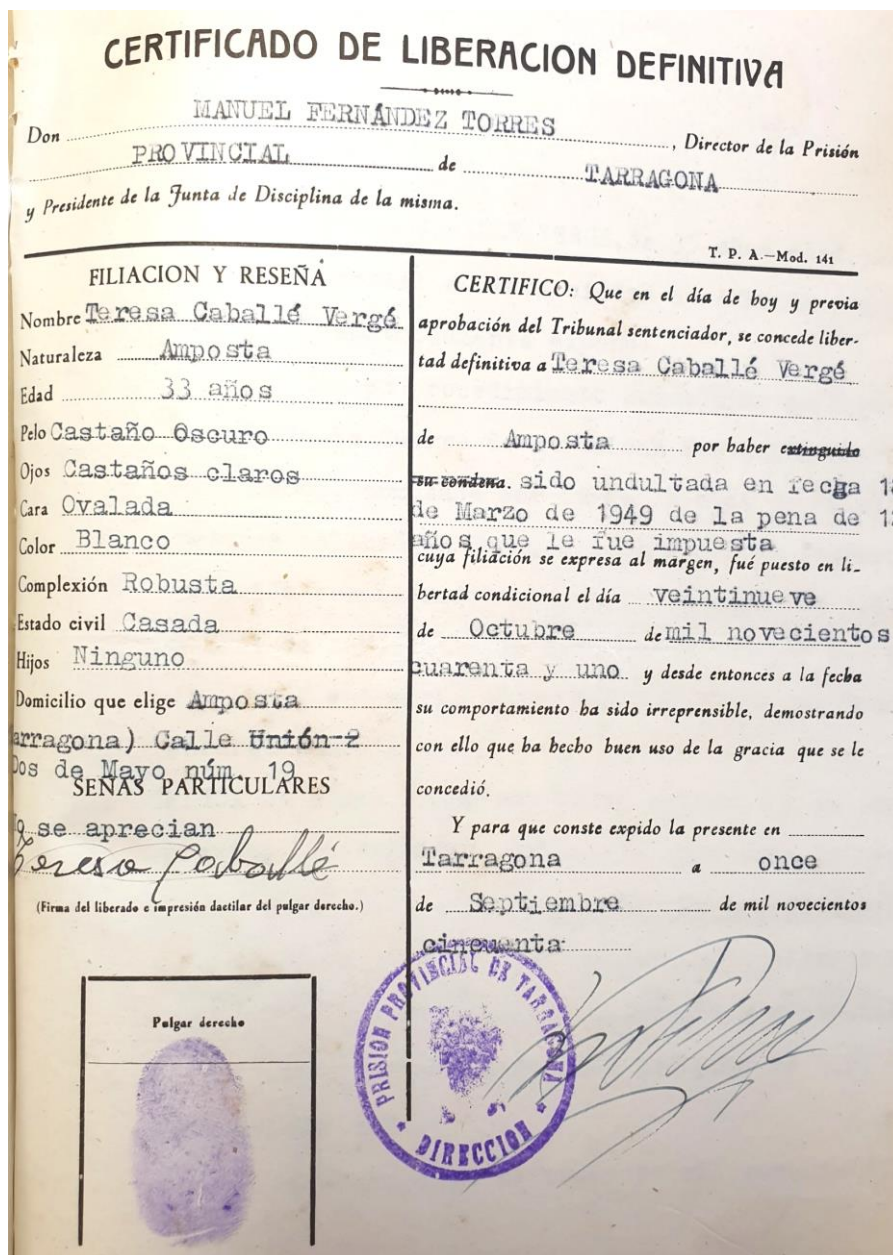 CERTIFICADO DE LIBERACION DEFINITIVA
Don MANUEL FERNÁNDEZ TORRES, Director de la Prisión
PROVINCIAL de TARRAGONA
y Presidente de la Junta de Disciplina de la misma.
T. P. A.—Mod. 141
FILIACION Y RESEÑA
Nombre Teresa Caballé Vergé
Naturaleza Amposta
Edad 33 años
Pelo Castaño Oscuro
Ojos Castaños claros
Cara Ovalada
Color Blanco
Complexión Robusta
Estado civil Casada
Hijos Ninguno
Domicilio que elige Amposta
arragona) Calle Unión 2
Dos de Mayo núm. 19
SEÑAS PARTICULARES
No se aprecian
Teresa Caballé
(Firma del liberado e impresión dactilar del pulgar derecho.)
Pulgar derecho
CERTIFICO: Que en el día de hoy y previa
aprobación del Tribunal sentenciador, se concede liber-
tad definitiva a Teresa Caballé Vergé
de Amposta por haber extinguido
su condena. sido undultada en fecga 1
de Marzo de 1949 de la pena de 1
años que le fue impuesta
cuya filiación se expresa al margen, fué puesto en li-
bertad condicional el día veintinueve
de Octubre de mil novecientos
cuarenta y uno y desde entonces a la fecha
su comportamiento ha sido irreprensible, demostrando
con ello que ha hecho buen uso de la gracia que se le
concedió.
Y para que conste expido la presente en
Tarragona a once
de Septiembre de mil novecientos
cincuenta
PRISION PROVINCIAL DE TARRAGONA
* DIRECCION *